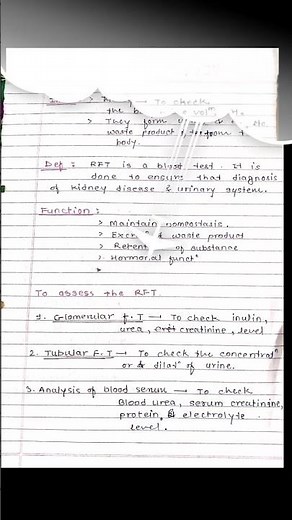 → To check
the b
> They form
waste product from t
body.
Def : RFT is a blood test. It is
done to ensure that diagnosis
of kidney disease & urinary system.
Function :
> Maintain homeostasis.
> Exc waste product
> Retent of substance
> Hormonal funct^n
>
To assess the RFT.
1. Glomerular F.T → To check inulin,
urea, creatinine, level
2. Tubular F.T → To check the concentrat^n
or dilat^n of urine.
3. Analysis of blood serum → To check
Blood urea, serum creatinine,
protein, & electrolyte
level.